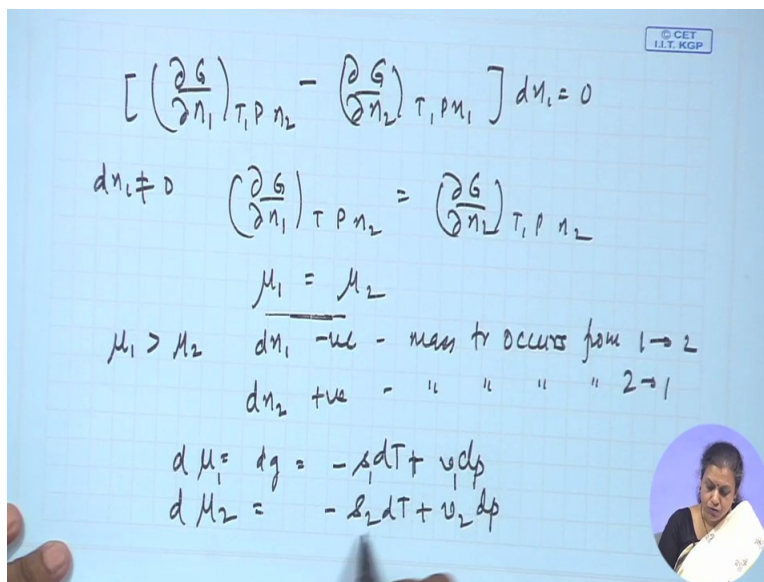 © CET
I.I.T. KGP
[ (∂G/∂n₁)T, P n₂ − (∂G/∂n₂)T, P n₁ ] dn₁ = 0
dn₁ ≠ 0 (∂G/∂n₁)T P n₂ = (∂G/∂n₂)T, P n₂
μ₁ = μ₂
μ₁ > μ₂ dn₁ -ve - mass tr occurs from 1→2
dn₂ +ve - " " " " 2→1
dμ₁ = dg = -s₁dT + v₁dp
dμ₂ = -s₂dT + v₂dp